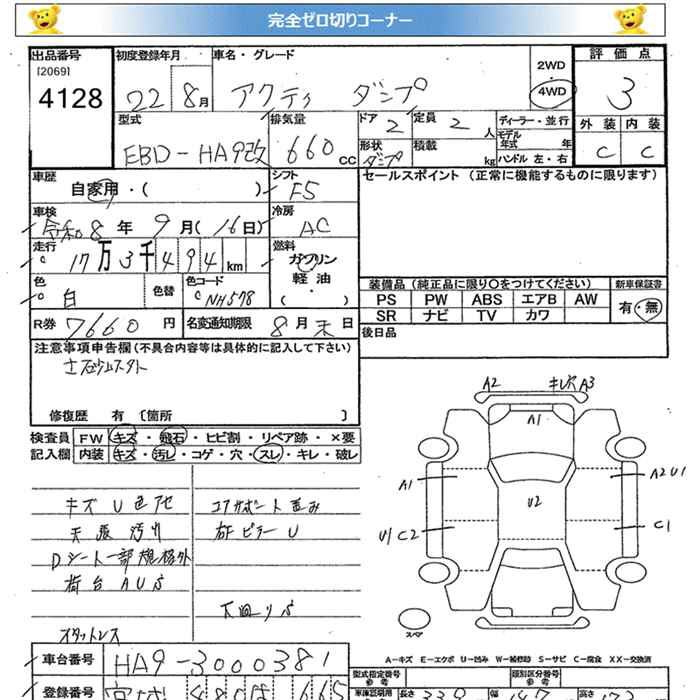 完全ゼロ切りコーナー
出品番号 初度登録年月 車名・グレード 2WD 評価点
[2069]
4128 22 8月 アクティ ダンプ 4WD 3
型式 排気量 ドア 2 定員 2 人 ディーラー・並行 外装 内装
モデル年式 年
EBD-HA9改 660cc 形状 ダンプ 積載 kg ハンドル 左・右 C C
車歴 自家用・( ) シフト F5 セールスポイント (正常に機能するものに限ります)
車検 令和8年 9月(16日) 冷房 AC
走行 17万3千494km 燃料 ガソリン
軽油
( ・ )
色 白 色替 色コード NH578
装備品 (純正品に限り〇をつけてください) 新車保証書
PS PW ABS エアB AW 有・無
SR ナビ TV カワ
R券 7660円 名変通知期限 8月末日 後日品
注意事項申告欄 (不具合内容等は具体的に記入して下さい)
修復歴 有 〔箇所 〕
検査員 FW キズ・飛石・ヒビ割・リペア跡・×要
記入欄 内装 キズ・汚レ・コゲ・穴・スレ・キレ・破レ
キズ U 色アセ
天張汚れ
Dシート一部規格外
荷台 AUS
コアサポート歪み
右Fピラー U
下廻りS
スタットレス
A2 キレツ A3
A1
A1 A2U1
U2
U1C2 C1
スペア
A-キズ E-エクボ U-凹み W-補修跡 S-サビ C-腐食 XX-交換済
車台番号 HA9-3000381
型式指定番号 類別区分番号
登録番号
車体寸法 長さ 339 幅 147 高さ